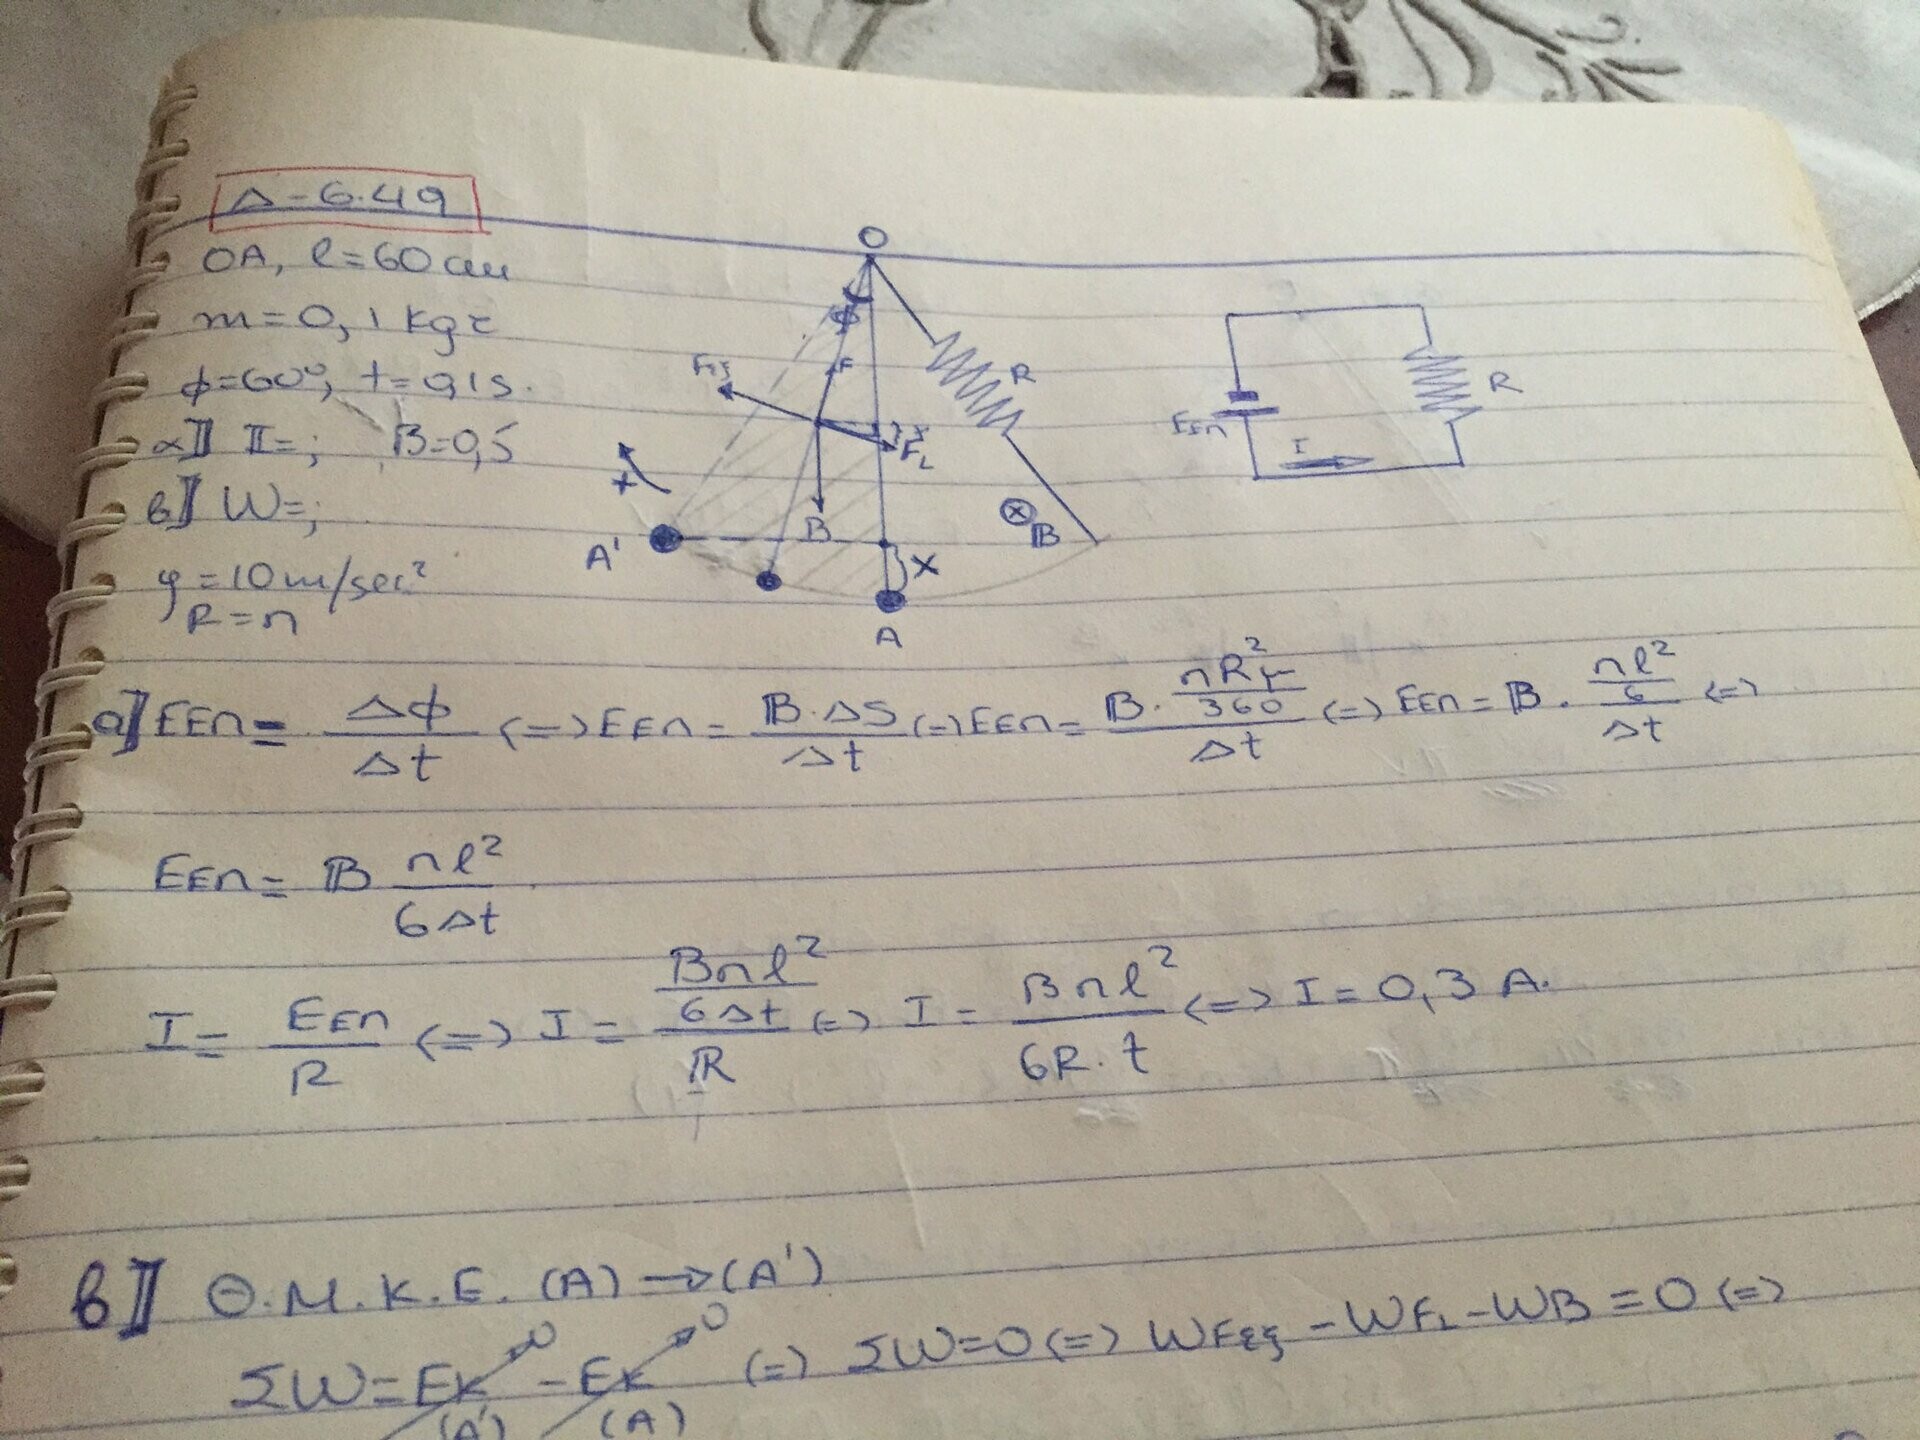 Δ-6.49
OA, l=60cm
m=0,1 kgr
φ=60°, t=0,1s.
α] I=; B=0,5
β] W=;
g=10m/sec²
R=π
O
φ
F
Fεξ
FL
x
R
+
A'
B
⊗ B
x
A
Eεπ
I
R
α] Eεπ = Δφ/Δt <=> Eεπ = B·ΔS/Δt <=> Eεπ = B·(πR²μ/360)/Δt <=> Eεπ = B·(πl²/6)/Δt <=>
Eεπ = B πl²/6Δt
I = Eεπ/R <=> I = (Bπl²/6Δt)/R <=> I = Bπl²/6R·t <=> I = 0,3 A.
β] Θ.Μ.Κ.Ε. (A) → (A')
ΣW = Eκ(A') → 0 - Eκ(A) → 0 <=> ΣW=0 <=> WFεξ - WFL - WB = 0 <=>